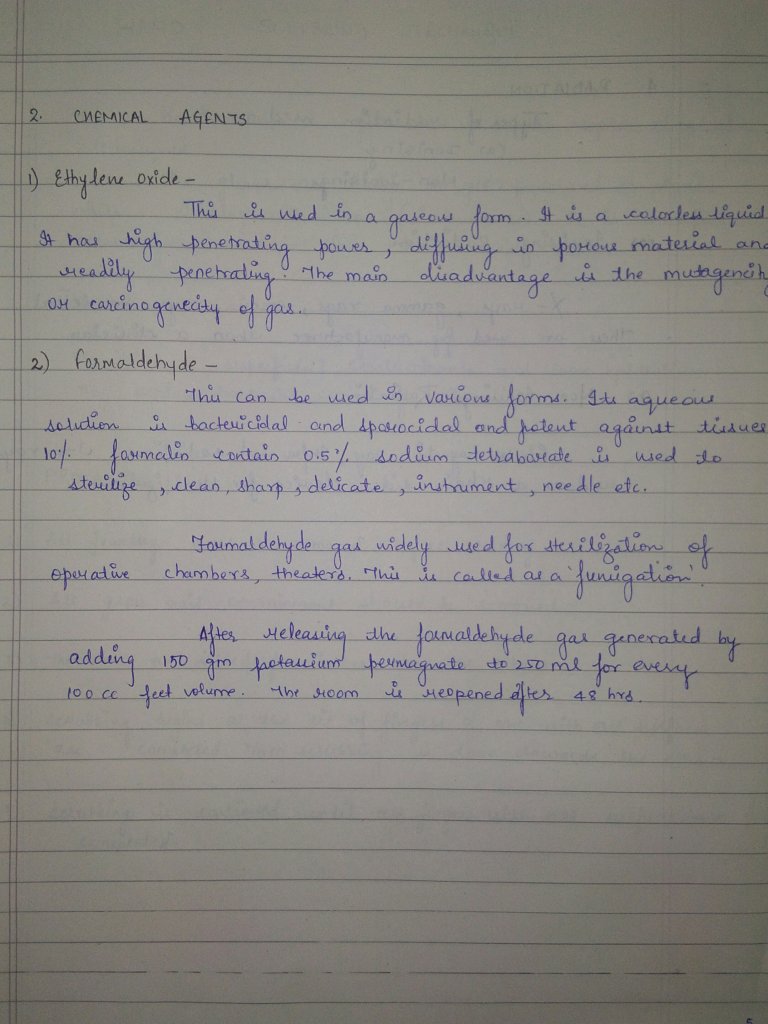 2. CHEMICAL AGENTS
1) Ethylene oxide –
This is used in a gaseous form. It is a colorless liquid.
It has high penetrating power, diffusing in porous material and
readily penetrating. The main disadvantage is the mutagencity
or carcinogenecity of gas.
2) Formaldehyde –
This can be used in various forms. Its aqueous
solution is bactericidal and sporocidal and potent against tissues
10% formalin contain 0.5% sodium tetraborate is used to
sterilize, clean, sharp, delicate, instrument, needle etc.
Formaldehyde gas widely used for sterilization of
operative chambers, theaters. This is called as a 'fumigation'.
After releasing the formaldehyde gas generated by
adding 150 gm potassium permagnate to 250 ml for every
100 cc feet volume. The room is reopened after 48 hrs.